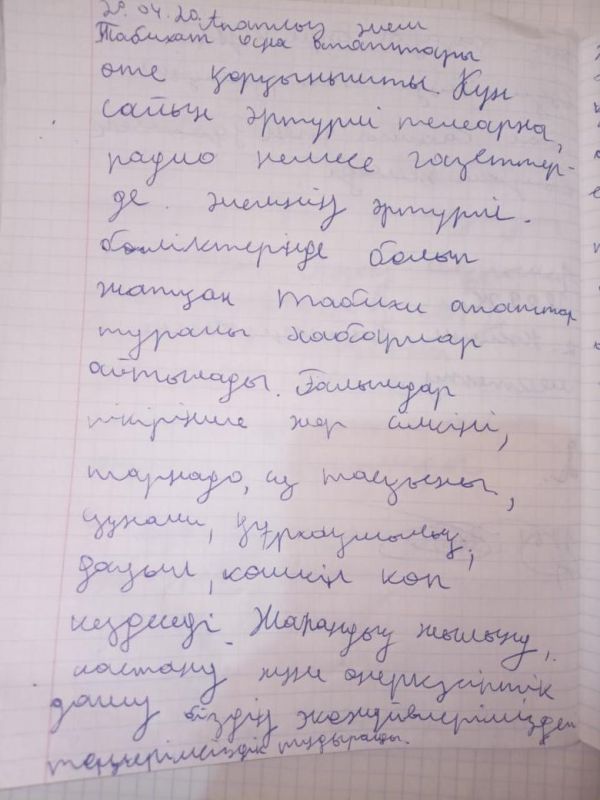 29.04.20. Апатлық әлем
Табиғат осна апаттары
өте қорқынышты. Күн
сайын әртүрлі телеарна,
радио немесе газеттер-
де. әлемнің әртүрлі.
бөліктерінде болып
жатқан табиғи апаттар
туралы хабарлар
айтылады. Ғалымдар
пікірінше жер сілкіні,
тарнадо, су тасқыны,
цунами, құрғақшылық,
дауыл, көшкін көп
кездеседі. Жарандық жылыну,
ластану және өнеркәсіптік
даму біздің экожүйелерімізден
теңгерімсіздік тудырады.